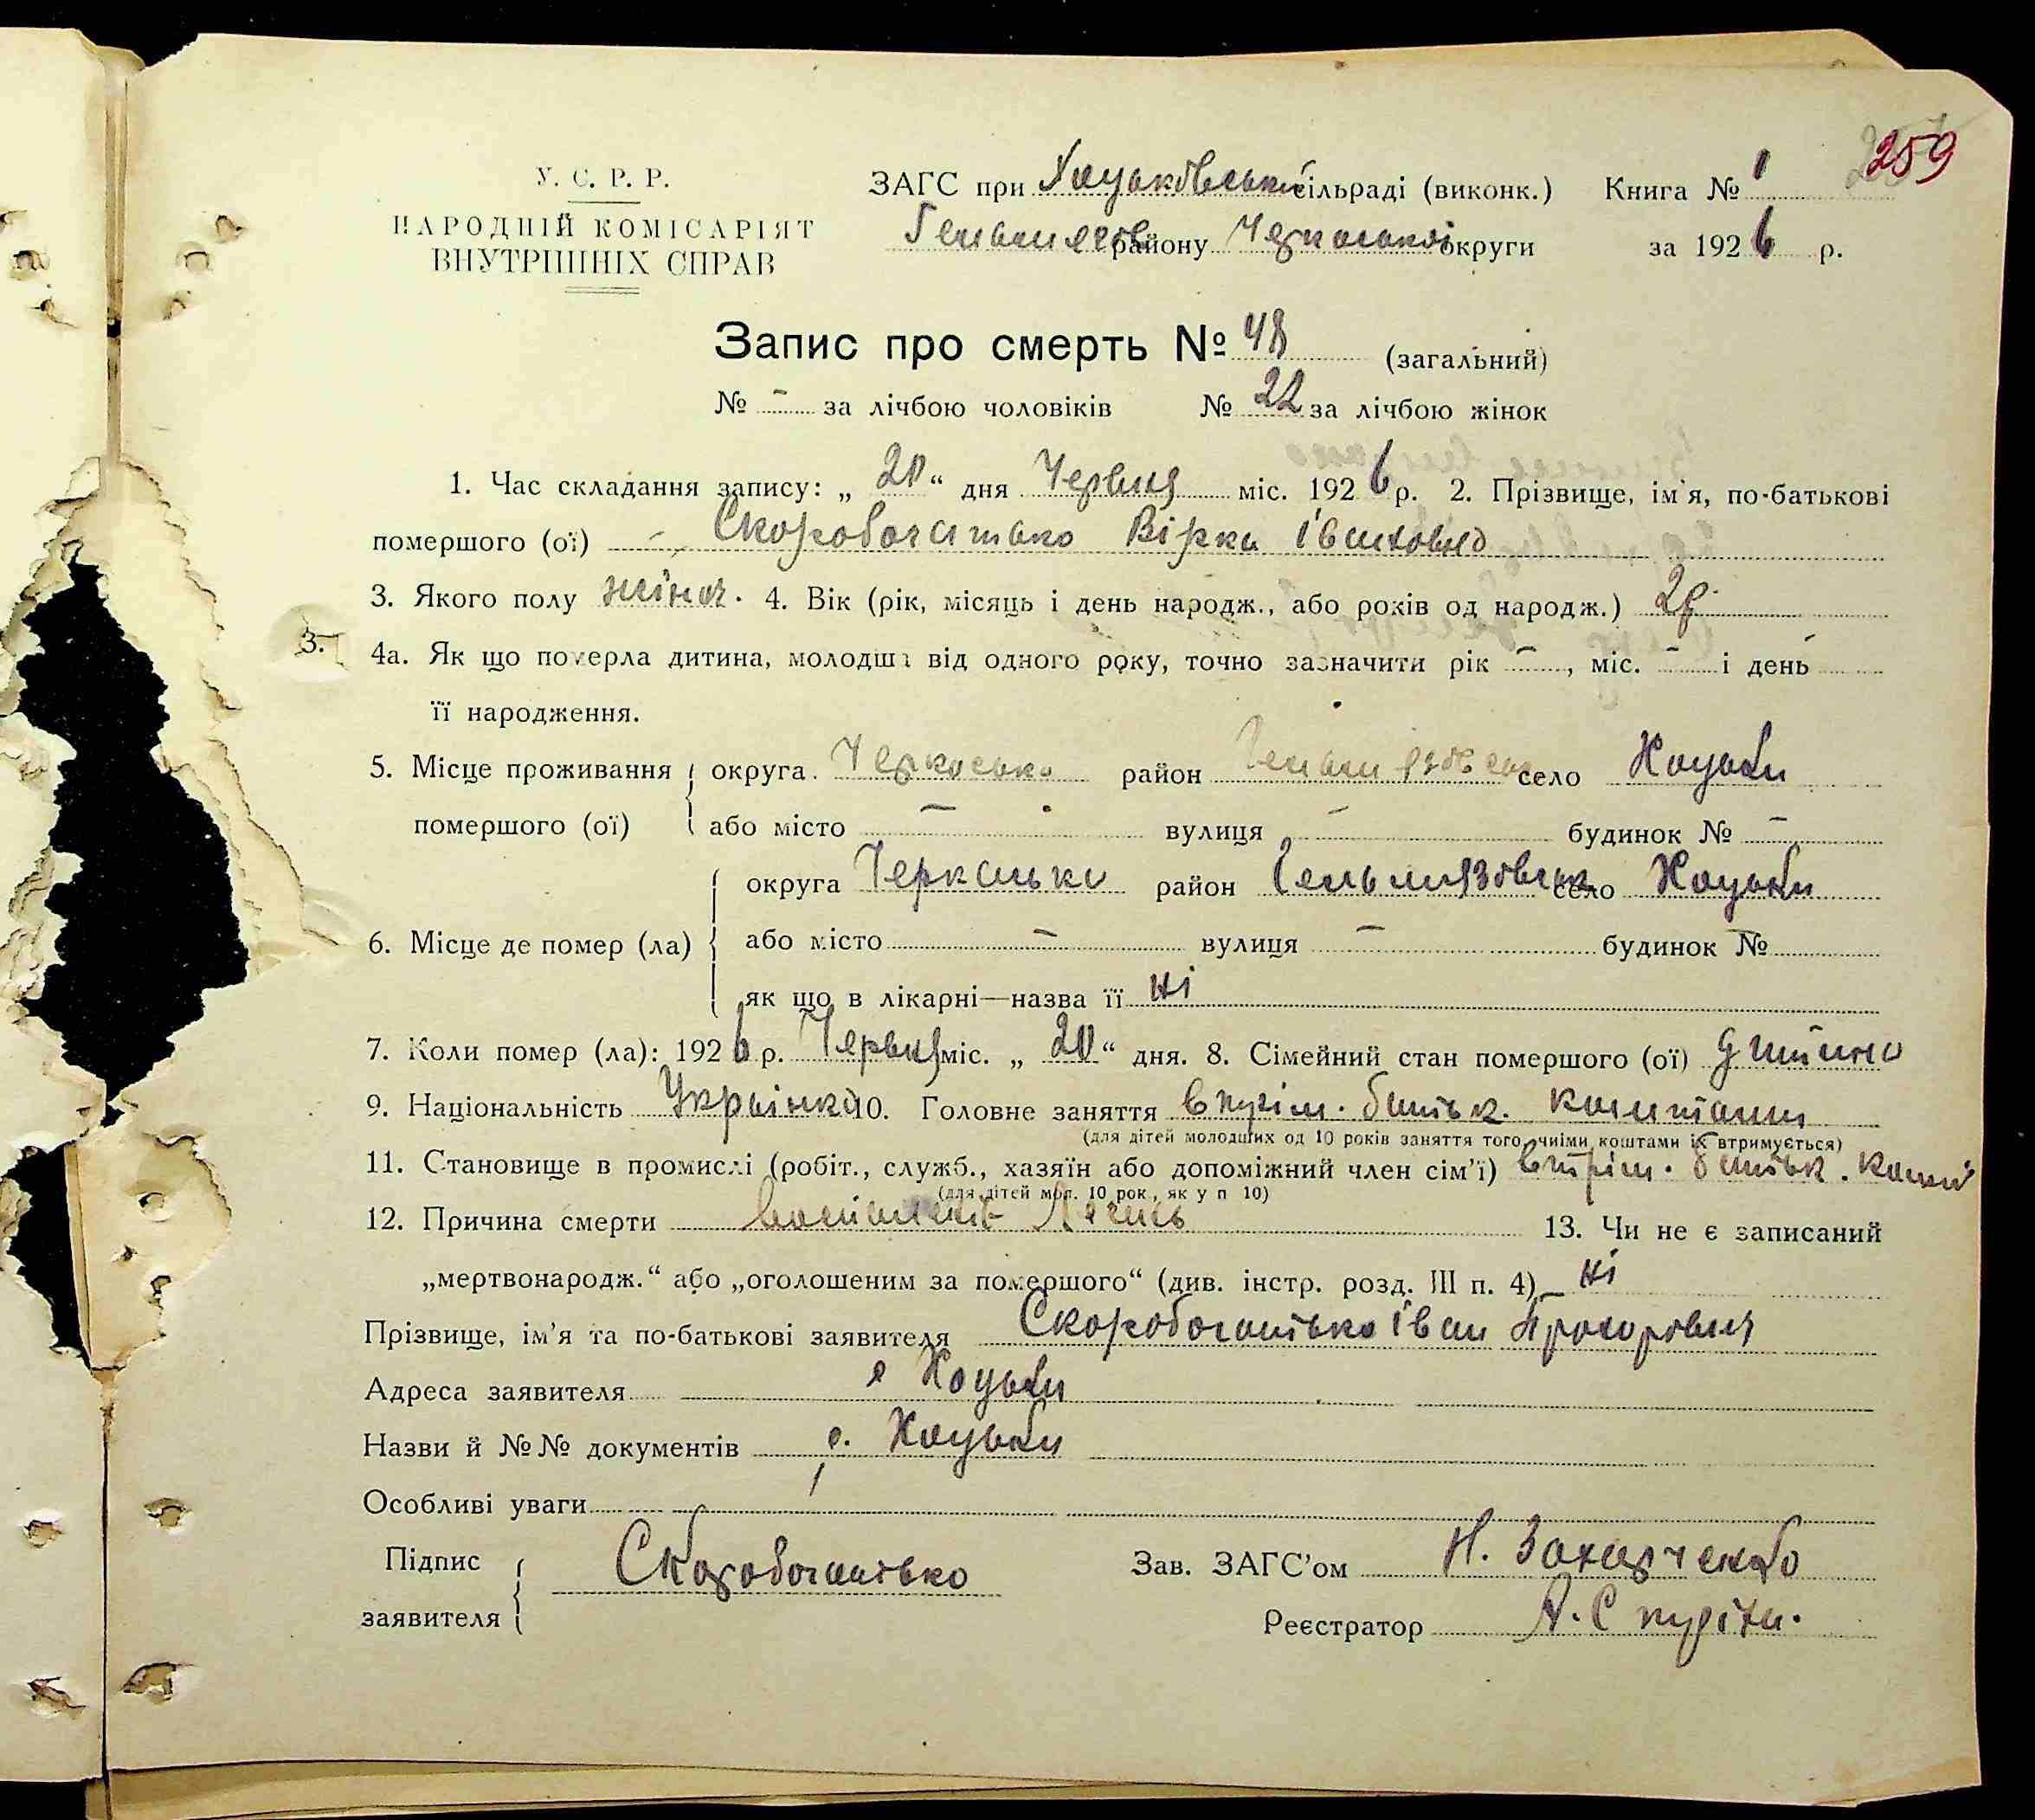 259
У. С. Р. Р.
НАРОДНІЙ КОМІСАРІЯТ
ВНУТРІШНІХ СПРАВ
ЗАГС при Хоцьковській сільраді (виконк.) Книга № 1
району Черкаської округи за 1926 р.
Запис про смерть № 48 (загальний)
№ - за лічбою чоловіків № 22 за лічбою жінок
1. Час складання запису: „ 20 “ дня Червня міс. 1926 р. 2. Прізвище, ім'я, по-батькові
помершого (ої) Скоробогатько Вірка Івановна
3. Якого полу жіноч. 4. Вік (рік, місяць і день народж., або років од народж.) 2р.
3.
4а. Як що померла дитина, молодша від одного року, точно зазначити рік -, міс. - і день -
її народження.
5. Місце проживання округа Черкаська район село Хоцьки
помершого (ої) або місто - вулиця - будинок № -
округа Черкаська район Гельмязовськ село Хоцьки
6. Місце де помер (ла) або місто - вулиця - будинок № -
як що в лікарні—назва її ні
7. Коли помер (ла): 1926 р. Червня міс. „ 20 “ дня. 8. Сімейний стан помершого (ої) дитина
9. Національність Українка 10. Головне заняття батьк. коштами
(для дітей молодших од 10 років заняття того, чиїми коштами їх втримується)
11. Становище в промислі (робіт., служб., хазяїн або допоміжний член сім'ї) втрім. батьк. кошт
(для дітей мол. 10 рок., як у п 10)
12. Причина смерти 13. Чи не є записаний
„мертвонародж.“ або „оголошеним за помершого“ (див. інстр. розд. III п. 4) ні
Прізвище, ім'я та по-батькові заявителя Скоробогатько Іван Прохорович
Адреса заявителя с Хоцьки
Назви й №№ документів с. Хоцьки
Особливі уваги
Підпис заявителя Скоробогатько
Зав. ЗАГС'ом Н. Захарченко
Реєстратор А.